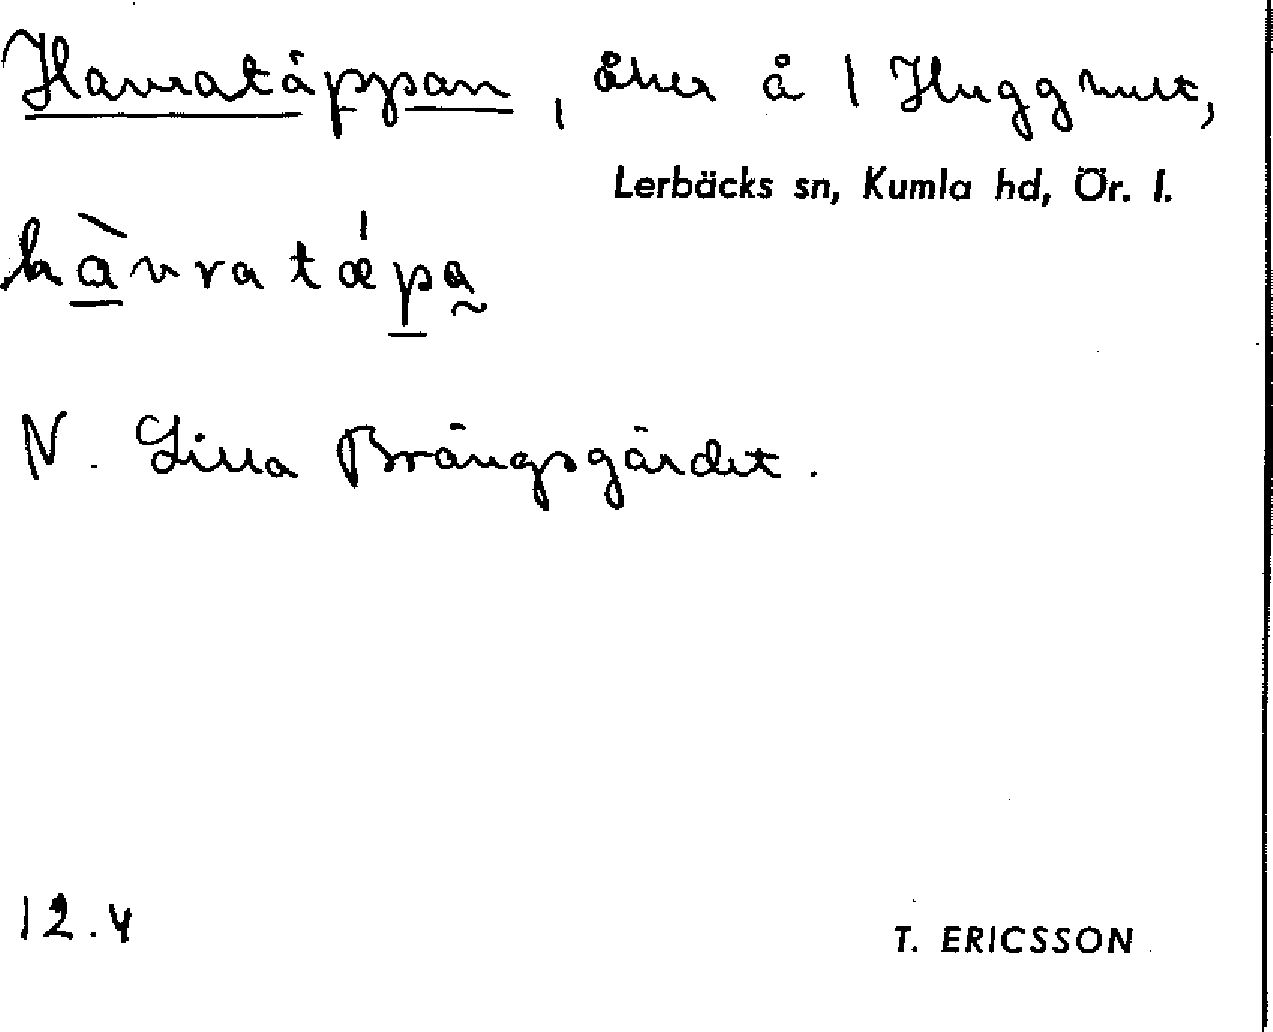 Havratäppan, åker å 1 Hugghult,
Lerbäcks sn, Kumla hd, Ör. l.
hàvratǽpa
N. Lilla Brängsgärdet.
12.4
T. ERICSSON